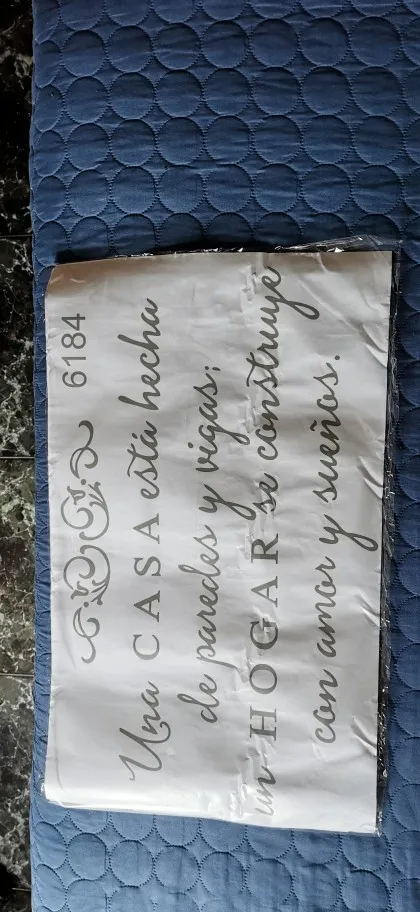 6184
Una CASA está hecha
de paredes y vigas;
un HOGAR se construye
con amor y sueños.